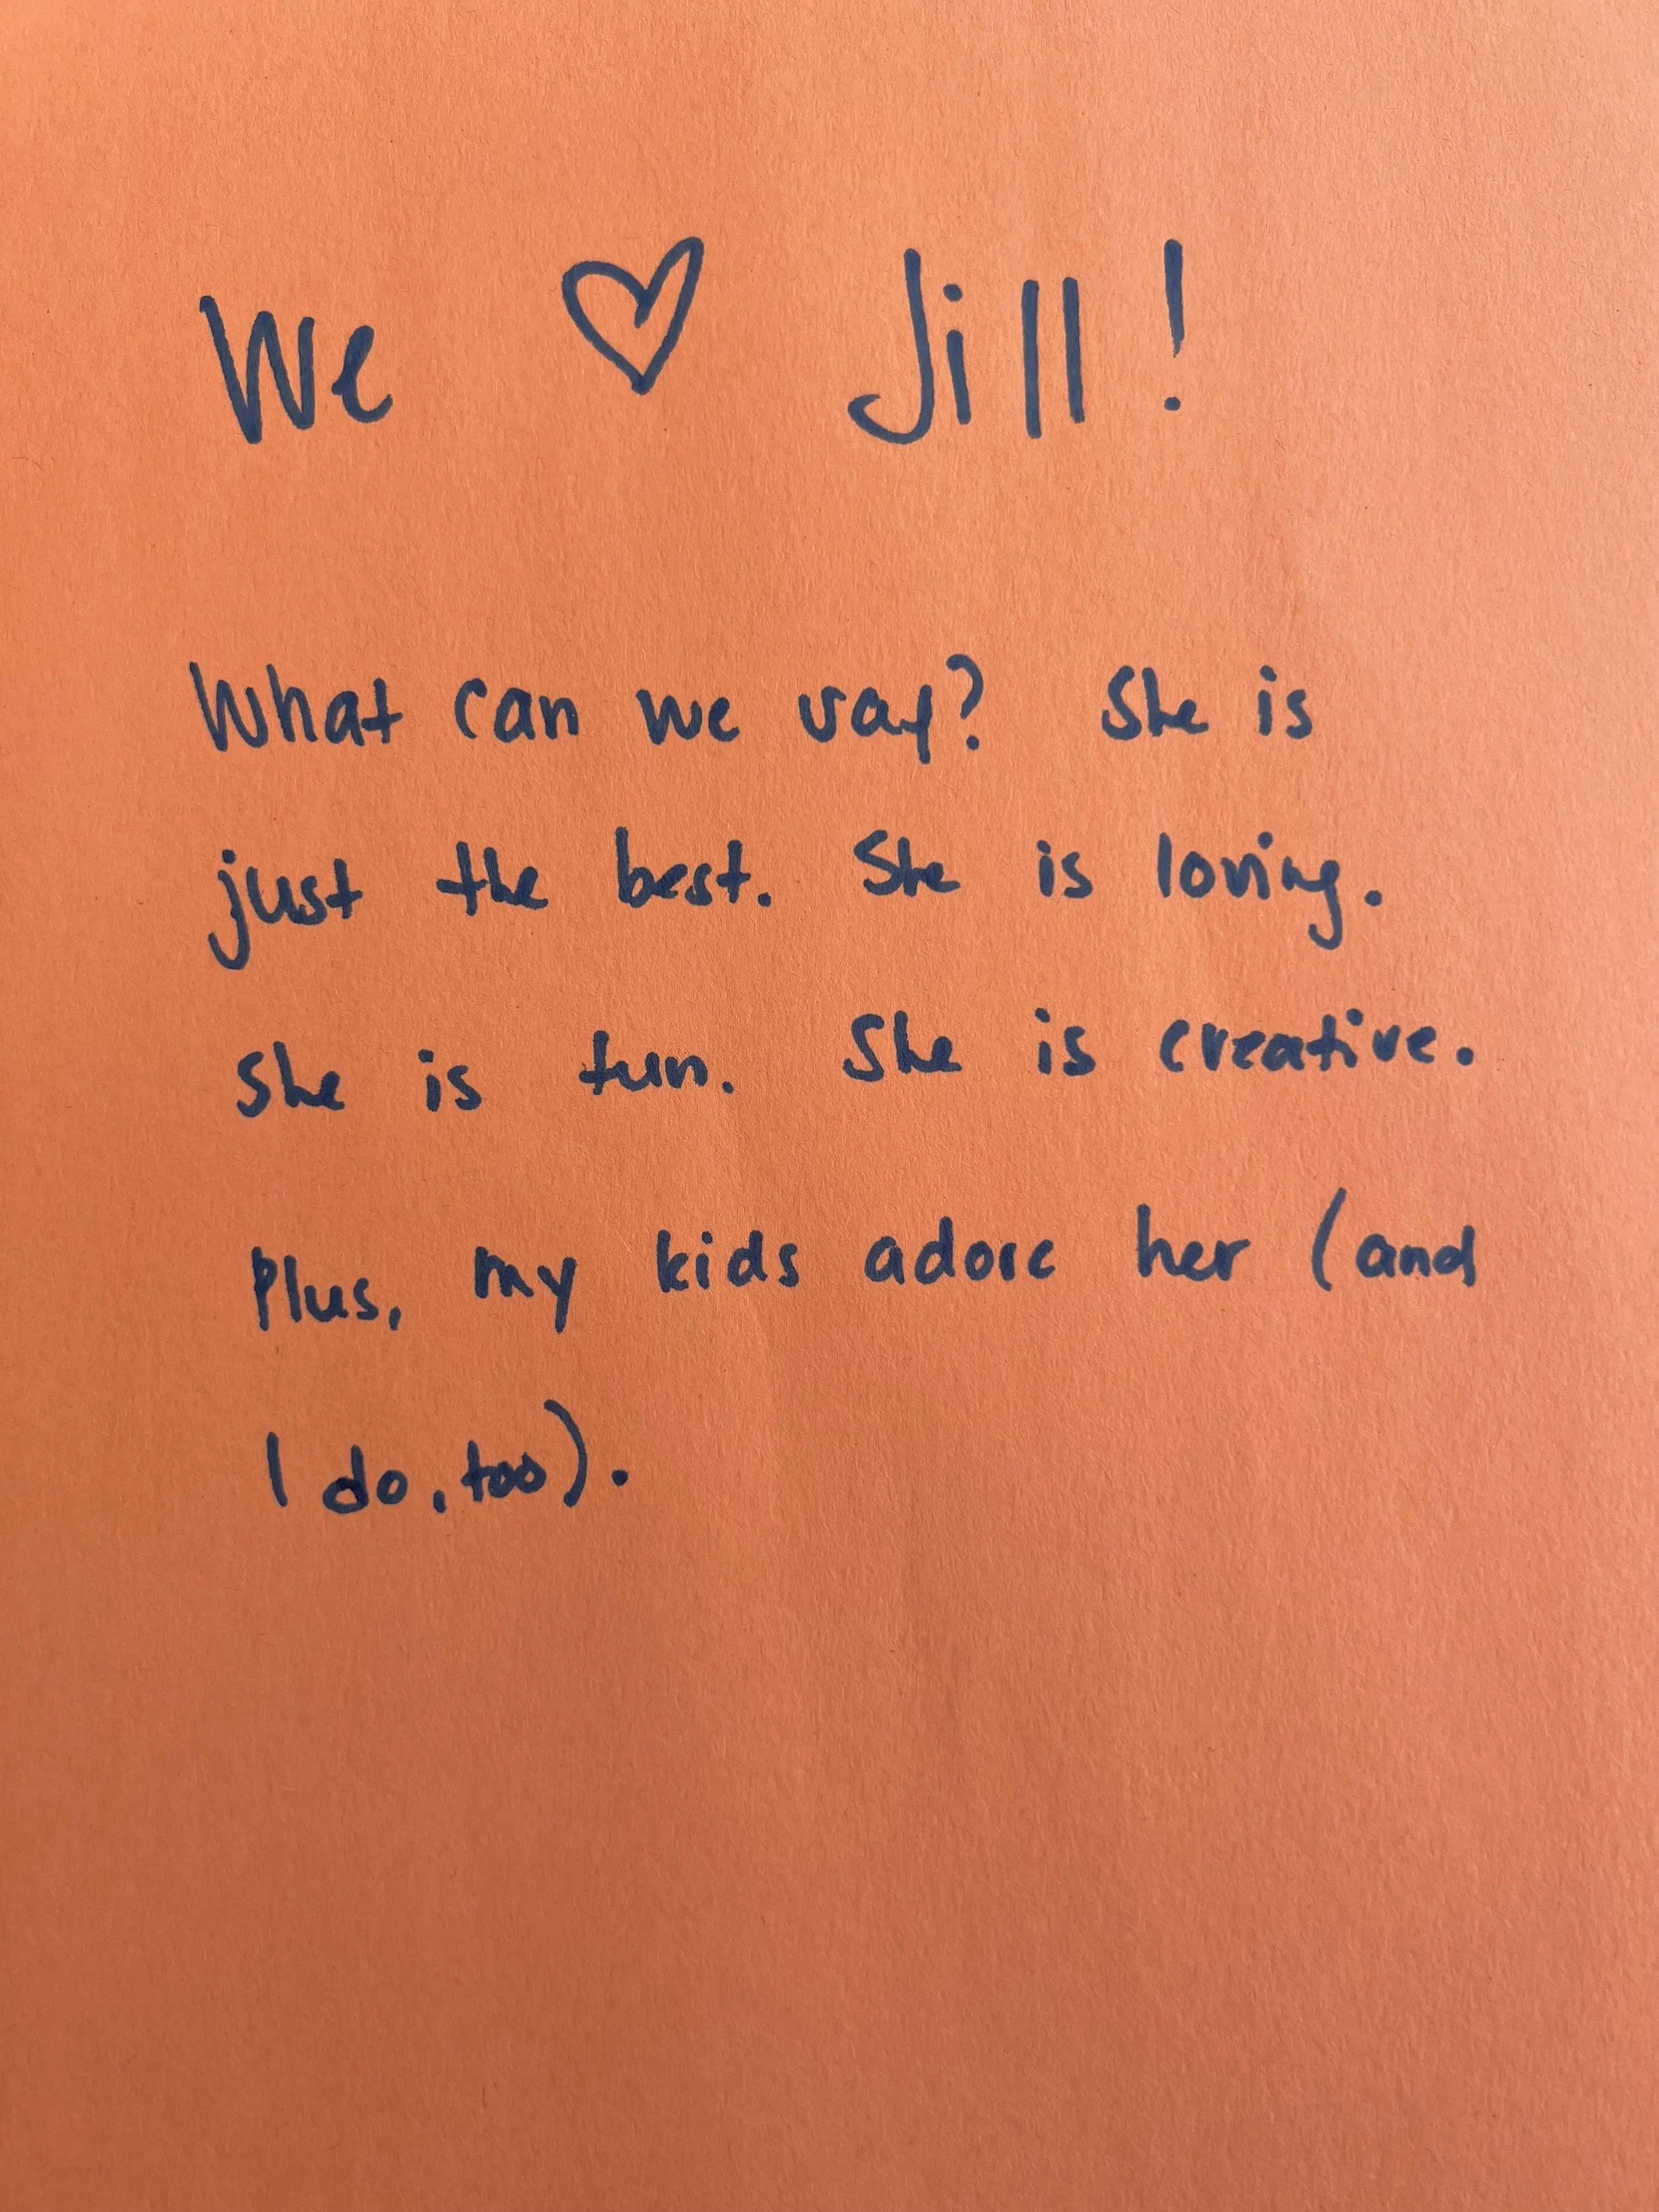 We ♡ Jill!
What can we say? She is
just the best. She is loving.
She is fun. She is creative.
Plus, my kids adore her (and
I do, too).